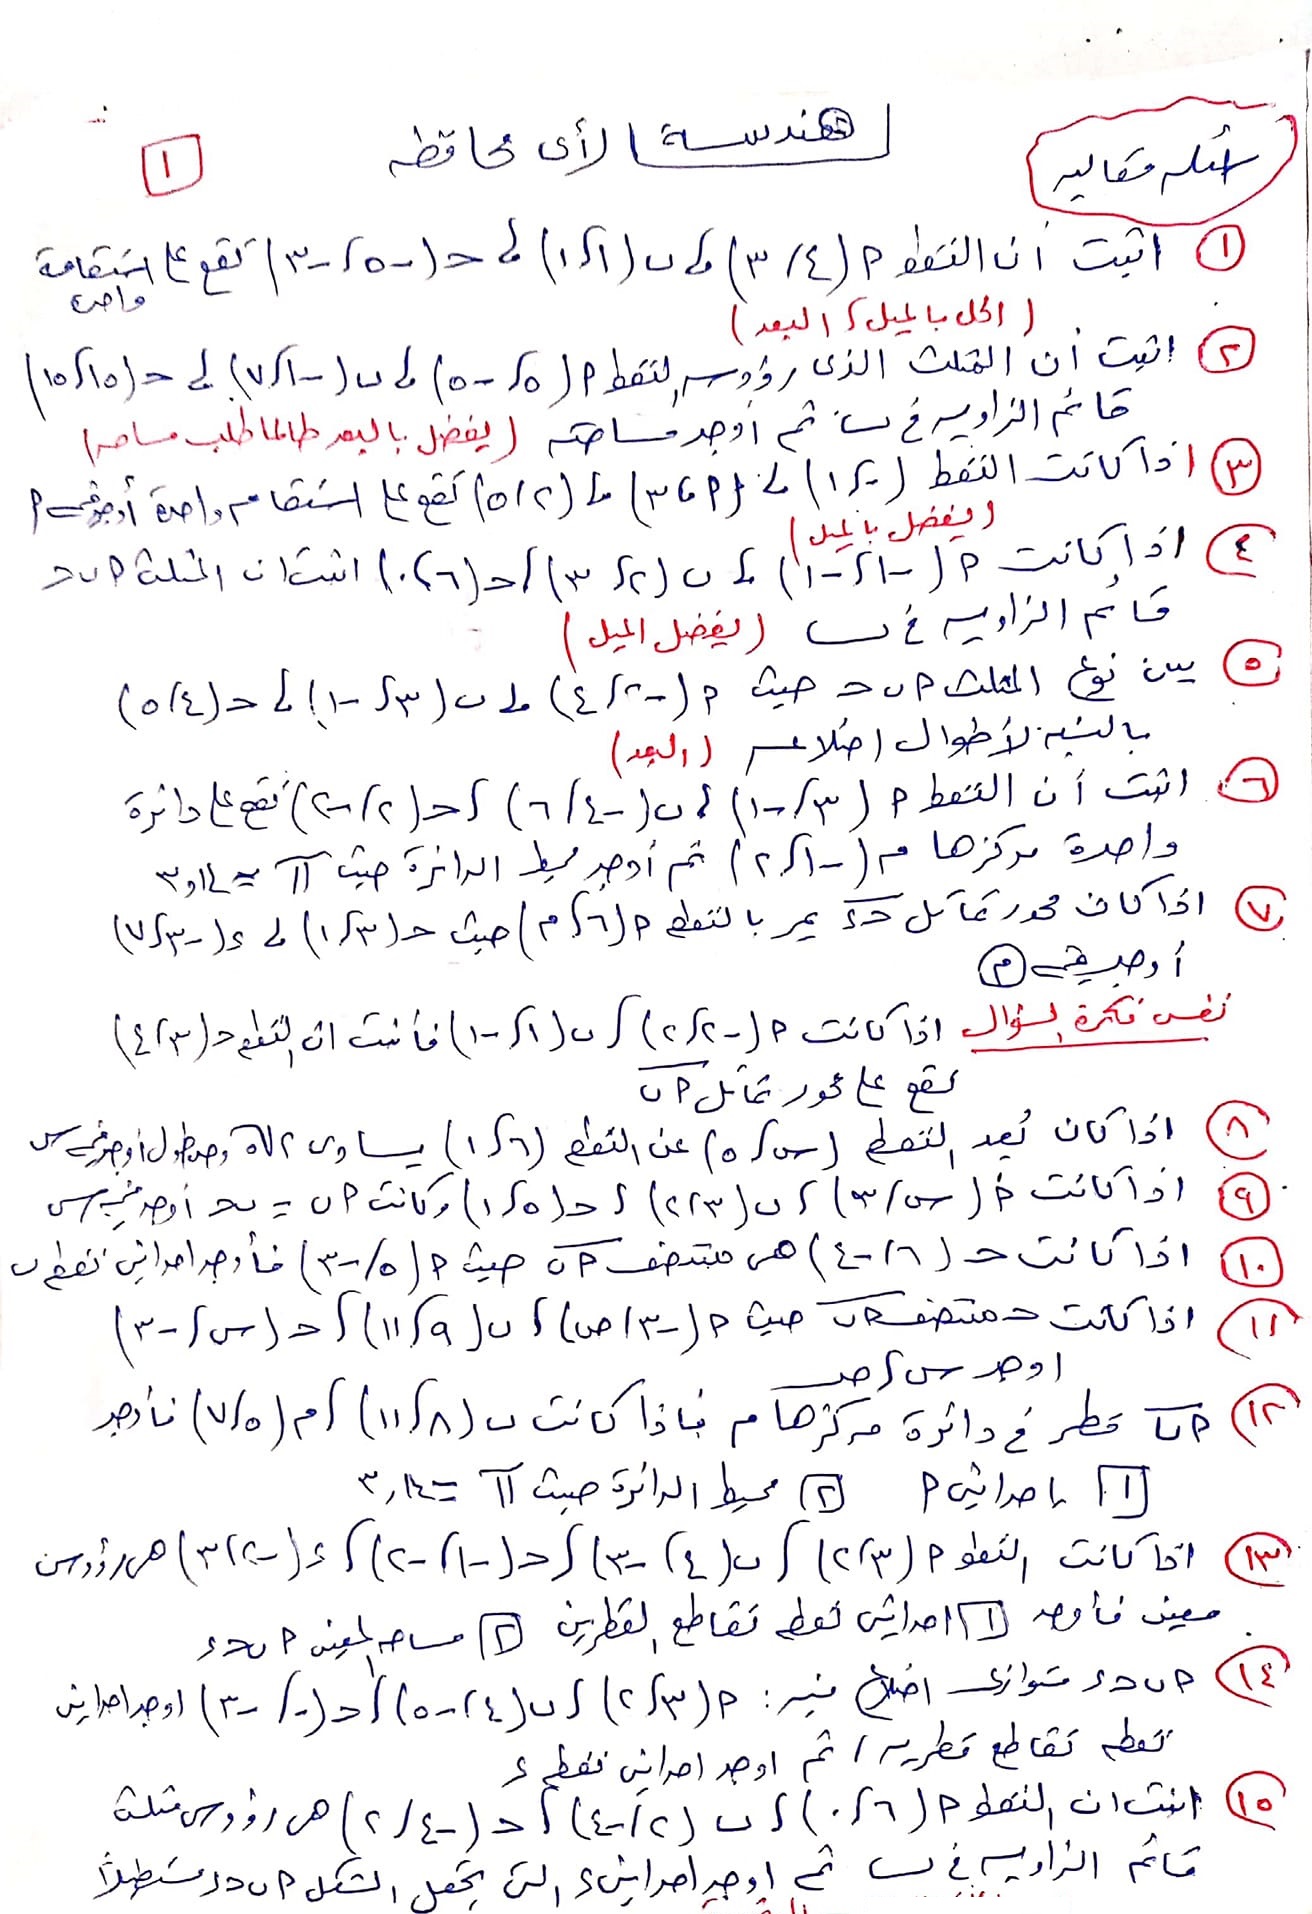 أسئلة مقاليه
هندسة لأى محافظه
١
١ اثبت أن النقط P (٤ ، ٣) ، ب (١ ، ١) ، حـ (-٥ ، -٣) تقع على استقامة واحدة
(الحل بالميل، البعد)
٢ اثبت أن المثلث الذى رؤوسه النقط P (٥ ، -٥) ، ب (-١ ، ٧) ، حـ (١٥ ، ١٥)
قائم الزاويه فى ب ثم أوجد مساحته (يفضل بالبعد طالما طلب مساحه)
٣ اذا كانت النقط (٠ ، ١) ، (P ، ٣) ، (٢ ، ٥) تقع على استقامه واحدة أوجد قيمة P
(يفضل بالميل)
٤ اذا كانت P (-١ ، -١) ، ب (٢ ، ٣) ، حـ (٦ ، ٠) اثبت ان المثلث P ب حـ
قائم الزاويه فى ب (يفضل الميل)
٥ بين نوع المثلث P ب حـ حيث P (-٢ ، ٤) ، ب (٣ ، -١) ، حـ (٤ ، ٥)
بالنسبة لأطوال اضلاعه (البعد)
٦ اثبت أن النقط P (٣ ، -١) ، ب (-٤ ، ٦) ، حـ (٢ ، -٢) تقع على دائرة
واحدة مركزها م (-١ ، ٢) ثم أوجد محيط الدائرة حيث π = ٣,١٤
٧ اذا كان محور تماثل حـ ء يمر بالنقطه P (٦ ، م) حيث حـ (٣ ، ١) ، ء (-٣ ، ٧)
أوجد قيمة م
نفس فكرة السؤال اذا كانت P (-٢ ، ٢) ، ب (١ ، -١) فأثبت ان النقطه حـ (٣ ، ٤)
تقع على محور تماثل P ب
٨ اذا كان بُعد النقطه (س ، ٥) عن النقطه (٦ ، ١) يساوى ٢√٥ وحدة طول أوجد قيمة س
٩ اذا كانت P (س ، ٣) ، ب (٣ ، ٢) ، حـ (٥ ، ١) وكانت P ب = ب حـ أوجد قيمة س
١٠ اذا كانت حـ (٦ ، -٤) هى منتصف P ب حيث P (٥ ، -٣) فأوجد احداثى نقطه ب
١١ اذا كانت حـ منتصف P ب حيث P (-٣ ، ص) ، ب (٩ ، ١١) ، حـ (س ، -٣)
اوجد س ، ص
١٢ P ب قطر فى دائرة مركزها م فاذا كانت ب (٨ ، ١١) ، م (٥ ، ٧) فأوجد
١ احداثى P ٢ محيط الدائرة حيث π = ٣,١٤
١٣ اذا كانت النقط P (٣ ، ٢) ، ب (٤ ، -٣) ، حـ (-١ ، -٢) ، ء (-٢ ، ٣) هى رؤوس
معين فأوجد ١ احداثى نقطه تقاطع القطرين ٢ مساحه المعين P ب حـ ء
١٤ P ب حـ ء متوازى اضلاع فيه : P (٣ ، ٢) ، ب (٤ ، -٥) ، حـ (٠ ، -٣) اوجد احداثى
نقطه تقاطع قطريه ، ثم اوجد احداثى نقطه ء
١٥ اثبت ان النقط P (٦ ، ٠) ، ب (٢ ، -٤) ، حـ (-٤ ، ٢) هى رؤوس مثلث
قائم الزاويه فى ب ثم اوجد احداثى ء التى تجعل الشكل P ب حـ ء مستطيلاً